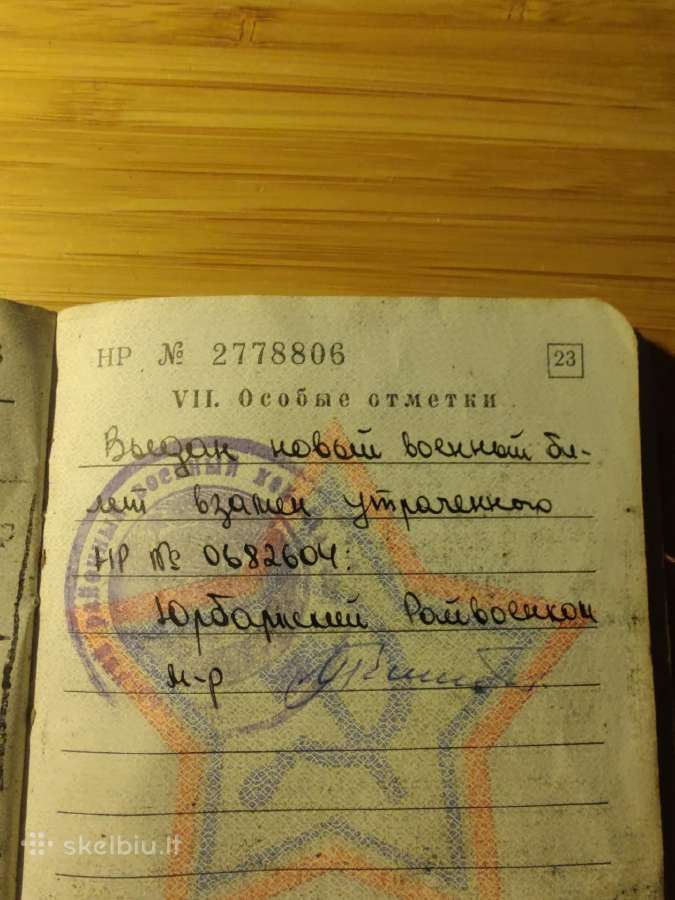 НР № 2778806
23
VII. Особые отметки
Выдан новый военный би-
лет взамен утраченного
НР № 0682604:
Юрбаркский Райвоенком
м-р
районный военный
skelbiu.lt